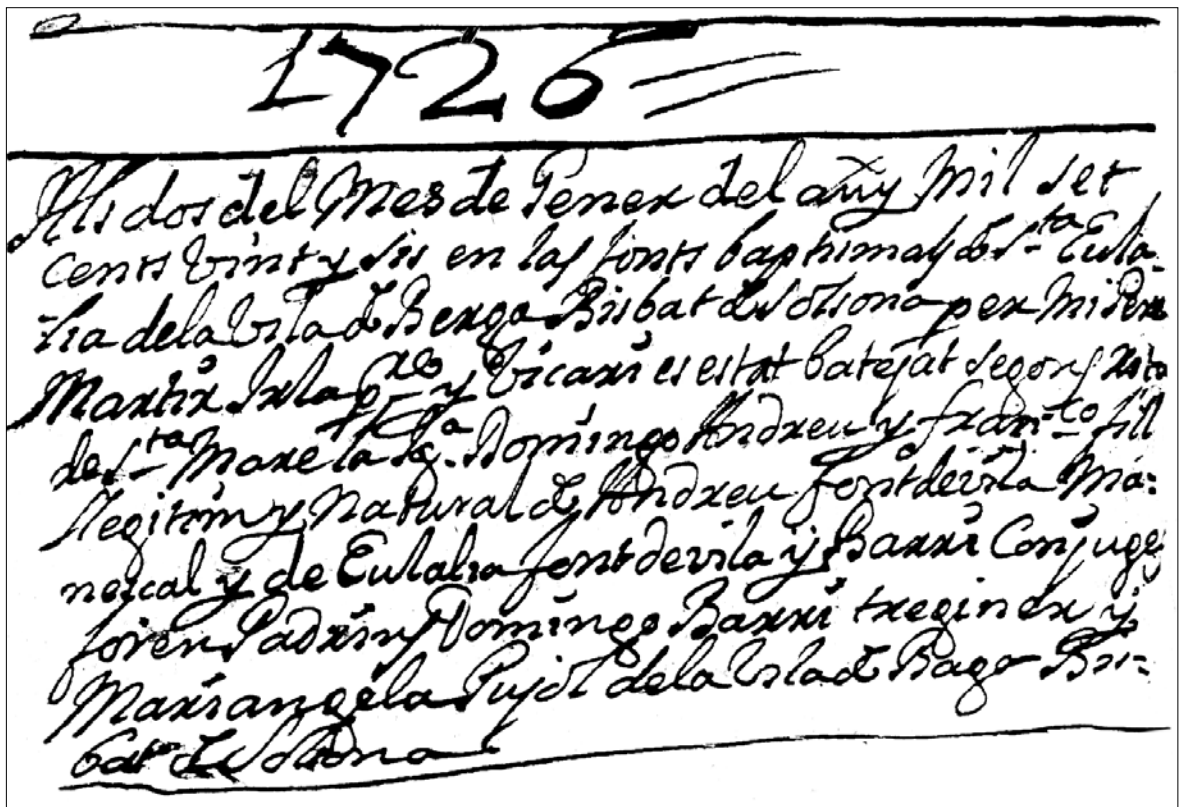 1726
Als dos del Mes de Jener del añy Mil set
cents vint y sis en las fonts baptismals de S.ta Eula-
lia dela vila de Berga Bisbat de Solsona per mi Pere
Martir Isla y vicari es estat batejat segons
de S.ta Mare la Domingo Andreu y fran.co fill
llegitim y natural de Andreu fontdevila Ma-
nescal y de Eulalia fontdevila y Barri Conjuges
foren Padrins Domingo Barri treginer y
Mariangela Pujol dela vila de Bis-
bat de Solsona